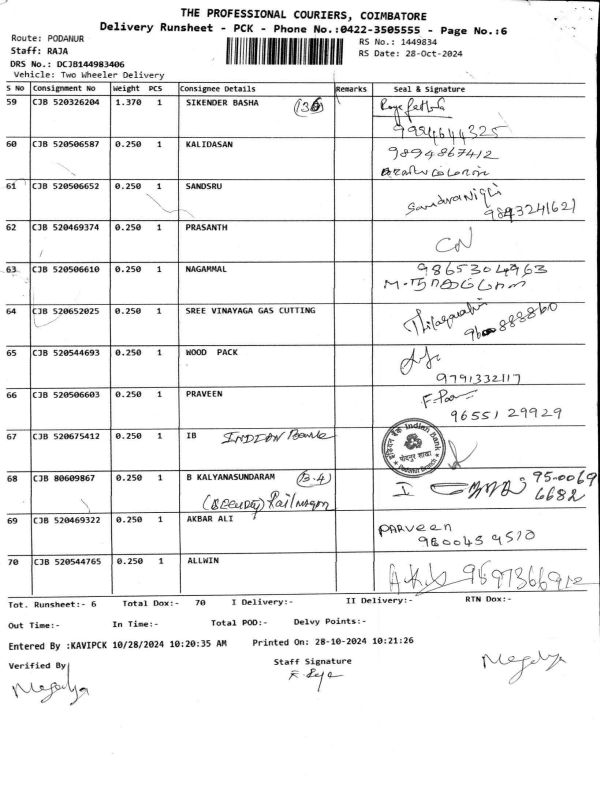 THE PROFESSIONAL COURIERS, COIMBATORE
Delivery Runsheet - PCK - Phone No.:0422-3505555 - Page No.:6
Route: PODANUR
RS No.: 1449834
Staff: RAJA
RS Date: 28-Oct-2024
DRS No.: DCJB144983406
Vehicle: Two Wheeler Delivery
S No Consignment No Weight PCS Consignee Details Remarks Seal & Signature
59 CJB 520326204 1.370 1 SIKENDER BASHA
9984644325
60 CJB 520506587 0.250 1 KALIDASAN 9894867412
61 CJB 520506652 0.250 1 SANDSRU
9843241621
62 CJB 520469374 0.250 1 PRASANTH
CN
63 CJB 520506610 0.250 1 NAGAMMAL 9865304963
64 CJB 520652025 0.250 1 SREE VINAYAGA GAS CUTTING
65 CJB 520544693 0.250 1 WOOD PACK
9791332117
66 CJB 520506603 0.250 1 PRAVEEN
96551 29929
67 CJB 520675412 0.250 1 IB INDIAN Bank
इंडियन बैंक Indian Bank
पोदनुर शाखा
Podanur Branch
68 CJB 80609867 0.250 1 B KALYANASUNDARAM (B.4) 95-0069
6682
Railnagar
69 CJB 520469322 0.250 1 AKBAR ALI PARVEEN
960045 9510
70 CJB 520544765 0.250 1 ALLWIN
Tot. Runsheet:- 6 Total Dox:- 70 I Delivery:- II Delivery:- RTN Dox:-
Out Time:- In Time:- Total POD:- Delvy Points:-
Entered By :KAVIPCK 10/28/2024 10:20:35 AM Printed On: 28-10-2024 10:21:26
Verified By Staff Signature